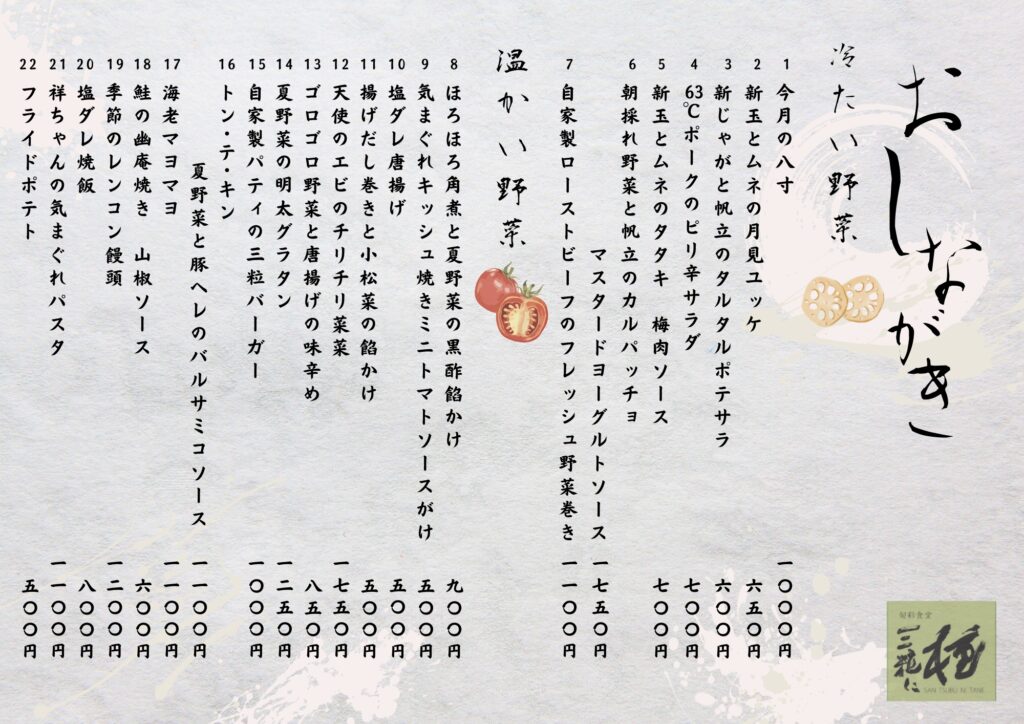 おしながき
冷たい野菜
1 今月の八寸 一〇〇〇円
2 新玉とムネの月見ユッケ 六五〇円
3 新じゃがと帆立のタルタルポテサラ 六〇〇円
4 63℃ポークのピリ辛サラダ 七〇〇円
5 新玉とムネのタタキ 梅肉ソース 七〇〇円
6 朝採れ野菜と帆立のカルパッチョ
マスタードヨーグルトソース 一七五〇円
7 自家製ローストビーフのフレッシュ野菜巻き 一一〇〇円
温かい野菜
8 ほろほろ角煮と夏野菜の黒酢餡かけ 九〇〇円
9 気まぐれキッシュ焼きミニトマトソースがけ 五〇〇円
10 塩ダレ唐揚げ 五〇〇円
11 揚げだし巻きと小松菜の餡かけ 五〇〇円
12 天使のエビのチリチリ菜菜 一七五〇円
13 ゴロゴロ野菜と唐揚げの味辛め 八五〇円
14 夏野菜の明太グラタン 一二五〇円
15 自家製パティの三粒バーガー 一〇〇〇円
16 トン・テ・キン
夏野菜と豚ヘレのバルサミコソース 一一〇〇円
17 海老マヨマヨ 一一〇〇円
18 鮭の幽庵焼き 山椒ソース 六〇〇円
19 季節のレンコン饅頭 一二〇〇円
20 塩ダレ焼飯 八〇〇円
21 祥ちゃんの気まぐれパスタ 一一〇〇円
22 フライドポテト 五〇〇円
旬彩食堂
三粒に
種
SAN TSUBU NI TANE